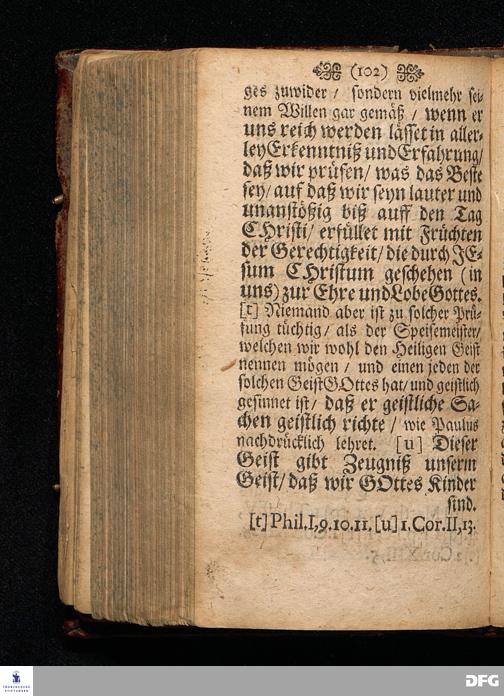 (102)
ges zuwider / sondern vielmehr sei-
nem Willen gar gemäß / wenn er
uns reich werden lässet in aller-
ley Erkenntniß und Erfahrung/
daß wir prüfen/ was das Beste
sey/ auf daß wir seyn lauter und
unanstößig biß auff den Tag
CHristi/ erfüllet mit Früchten
der Gerechtigkeit/ die durch JE-
sum CHristum geschehen (in
uns) zur Ehre und Lobe Gottes.
[t] Niemand aber ist zu solcher Prü-
fung tüchtig/ als der Speisemeister/
welchen wir wohl den Heiligen Geist
nennen mögen / und einen jeden der
solchen Geist GOttes hat/ und geistlich
gesinnet ist/ daß er geistliche Sa-
chen geistlich richte / wie Paulus
nachdrücklich lehret. [u] Dieser
Geist gibt Zeugniß unserm
Geist/ daß wir GOttes Kinder
sind.
[t] Phil. I, 9. 10. 11. [u] 1. Cor. II, 13.
FRANCKESCHE
STIFTUNGEN
DFG